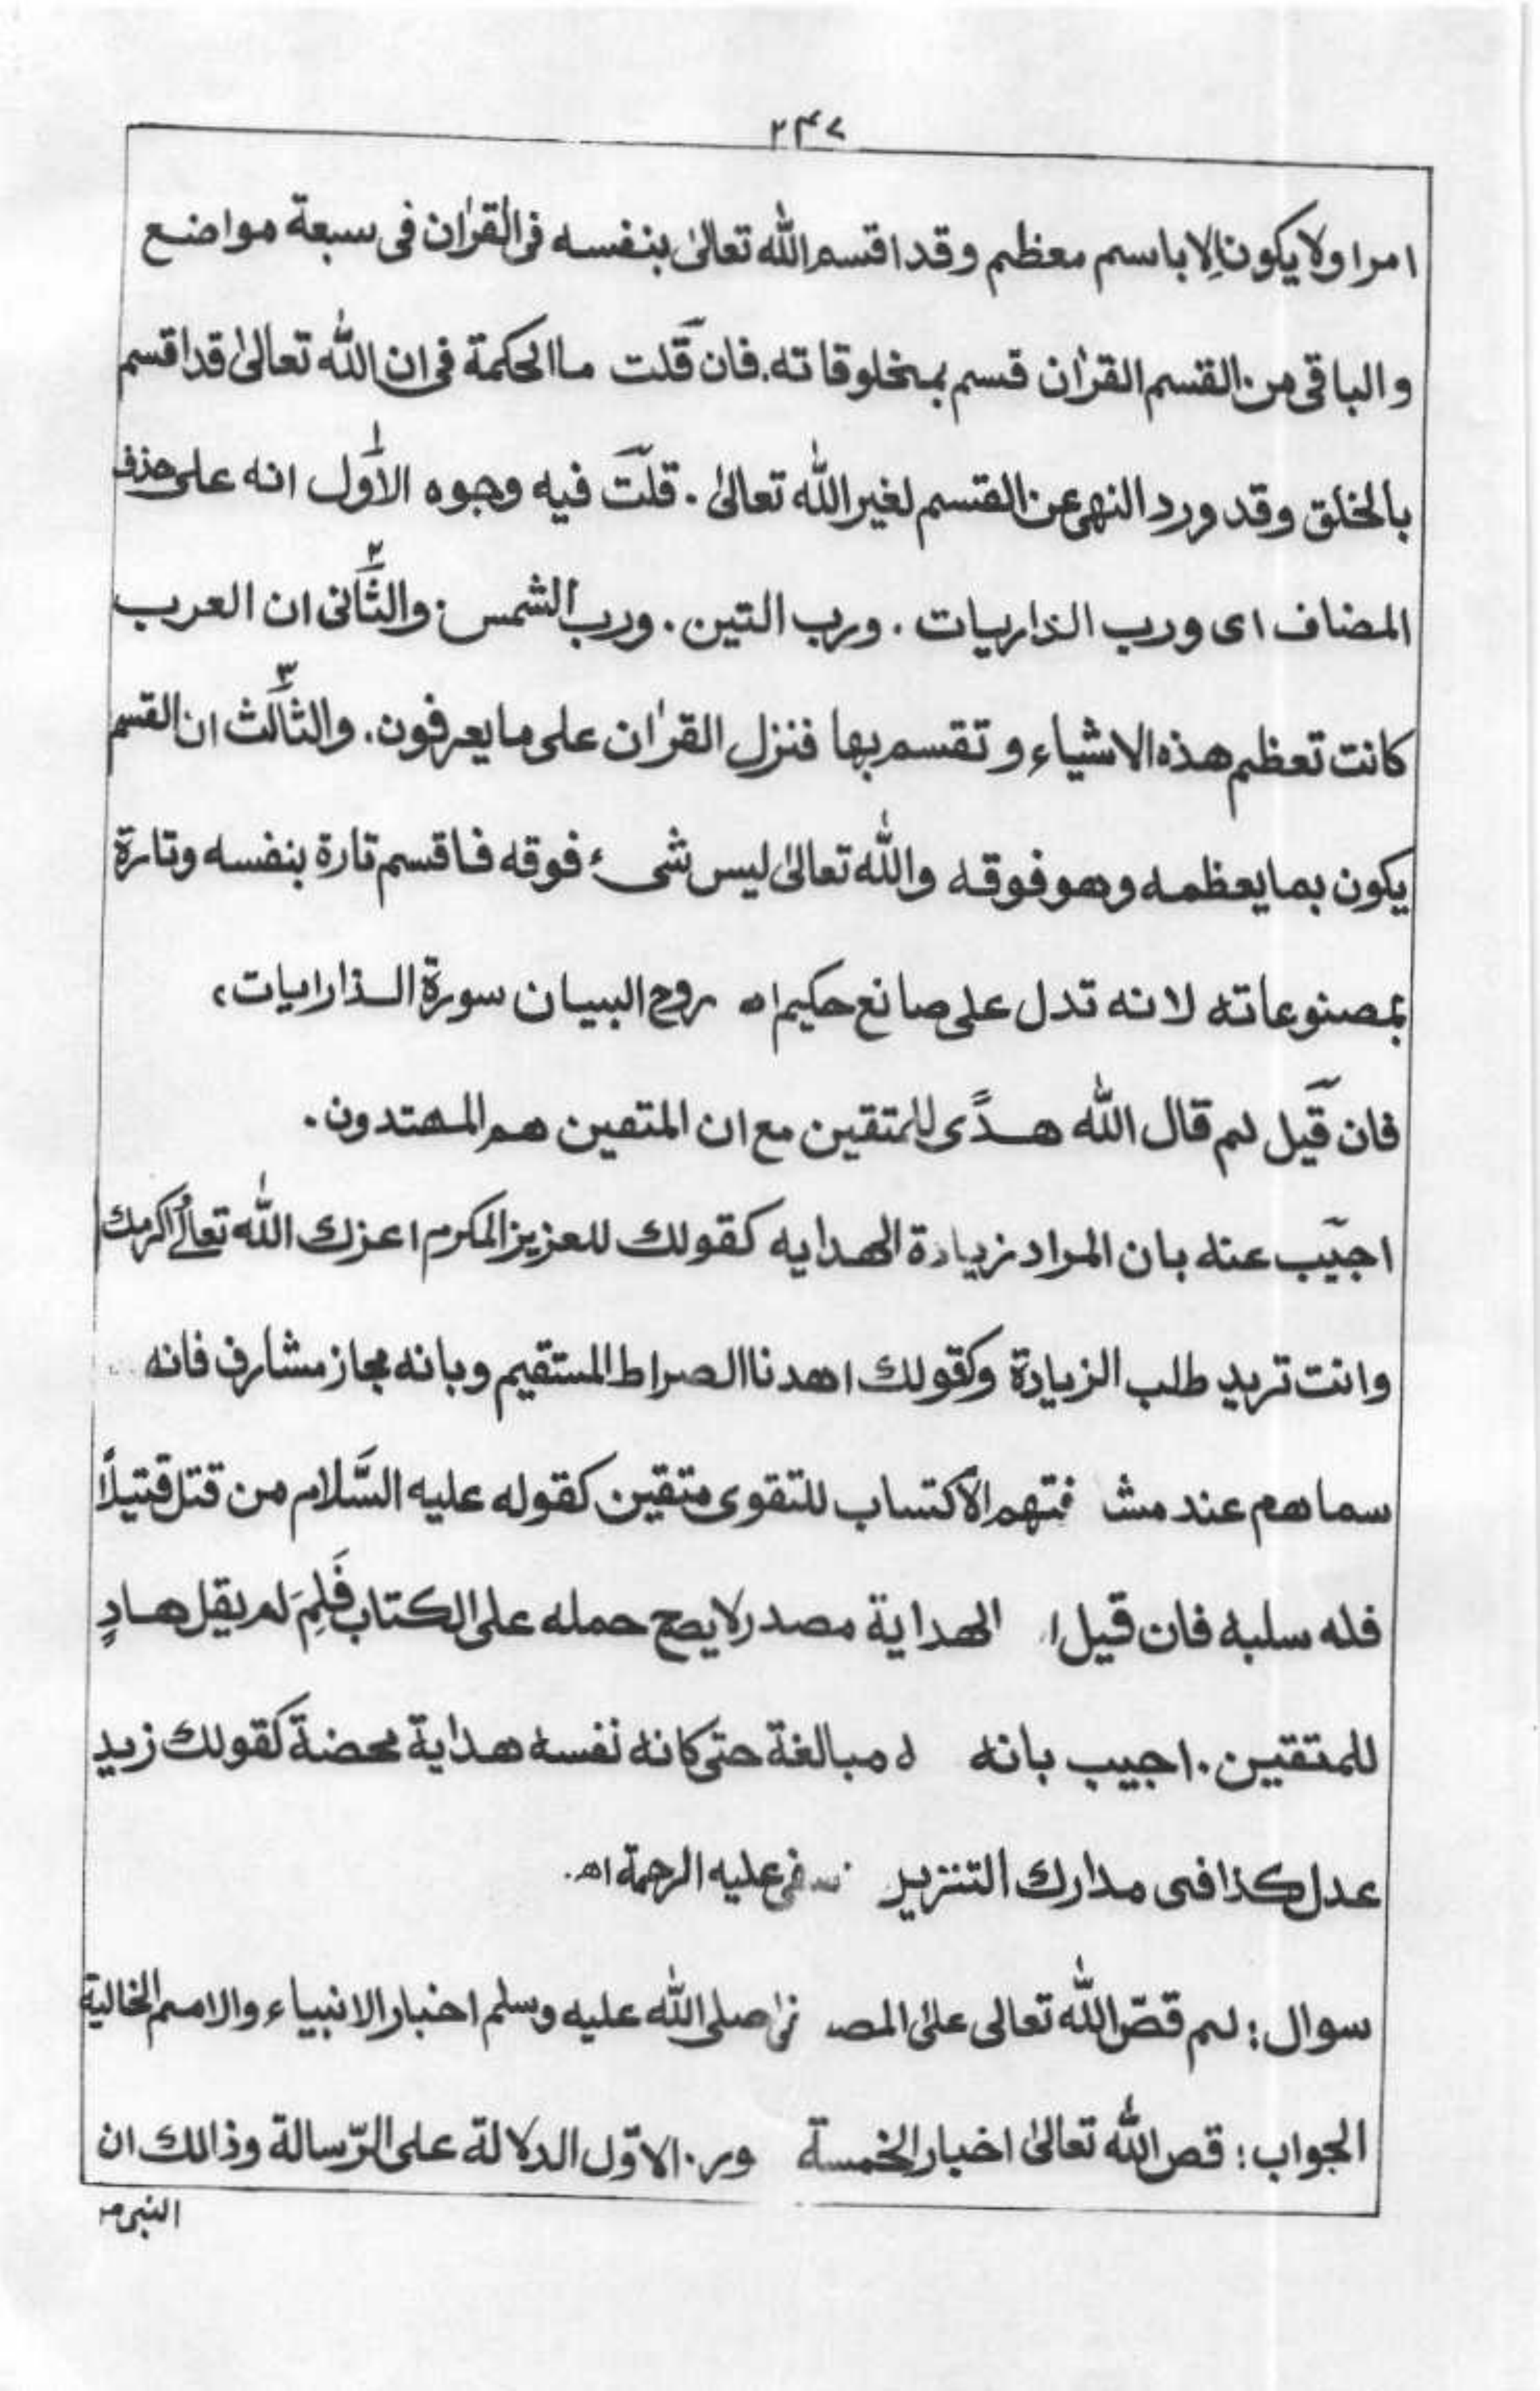 ۲۴۷
امرا ولا يكون اِلا باسم معظم وقد اقسم الله تعالىٰ بنفسه فى القراٰن فى سبعة مواضع
والباقى من القسم القراٰن قسم بمخلوقاته. فان قلت ما الحكمة فى ان الله تعالىٰ قد اقسم
بالخلق وقد ورد النهى عن القسم لغير الله تعالىٰ. قلت فيه وجوه الاول ۱ انه على حذف
المضاف اى ورب الذاريات. ورب التين. ورب الشمس: والثانى ۲ ان العرب
كانت تعظم هذه الاشياء وتقسم بها فنزل القراٰن على ما يعرفون. والثالث ۳ ان القسم
يكون بما يعظمه وهو فوقه والله تعالىٰ ليس شىء فوقه فاقسم تارة بنفسه وتارة
بمصنوعاته لانه تدل على صانع حكيم اه روح البيان سورة الذارايات،
فان قيل لم قال الله هدًى للمتقين مع ان المتقين هم المهتدون.
اجيب عنه بان المراد زيادة الهدايه كقولك للعزيز المكرم اعزك الله تعالىٰ اكرمك
وانت تريد طلب الزيادة وكقولك اهدنا الصراط المستقيم وبانه مجاز مشارف فانه
سماهم عند الاكتساب للتقوى متقين كقوله عليه السَّلام من قتل قتيلاً
فله سلبه فان قيل الهداية مصدر لا يصح حمله على الكتاب فَلِمَ لم يقل هادٍ
للمتقين. اجيب بانه مبالغة حتى كانه نفسه هداية محضة كقولك زيد
عدل كذا فى مدارك عليه الرحمة اھ.
سوال: لم قصّ الله تعالى على صلى الله عليه وسلم اخبار الانبياء والامم الخالية
الجواب: قص الله تعالىٰ اخبار الخمسة الاوّل الدلالة على الرّسالة وذالك ان
النبى